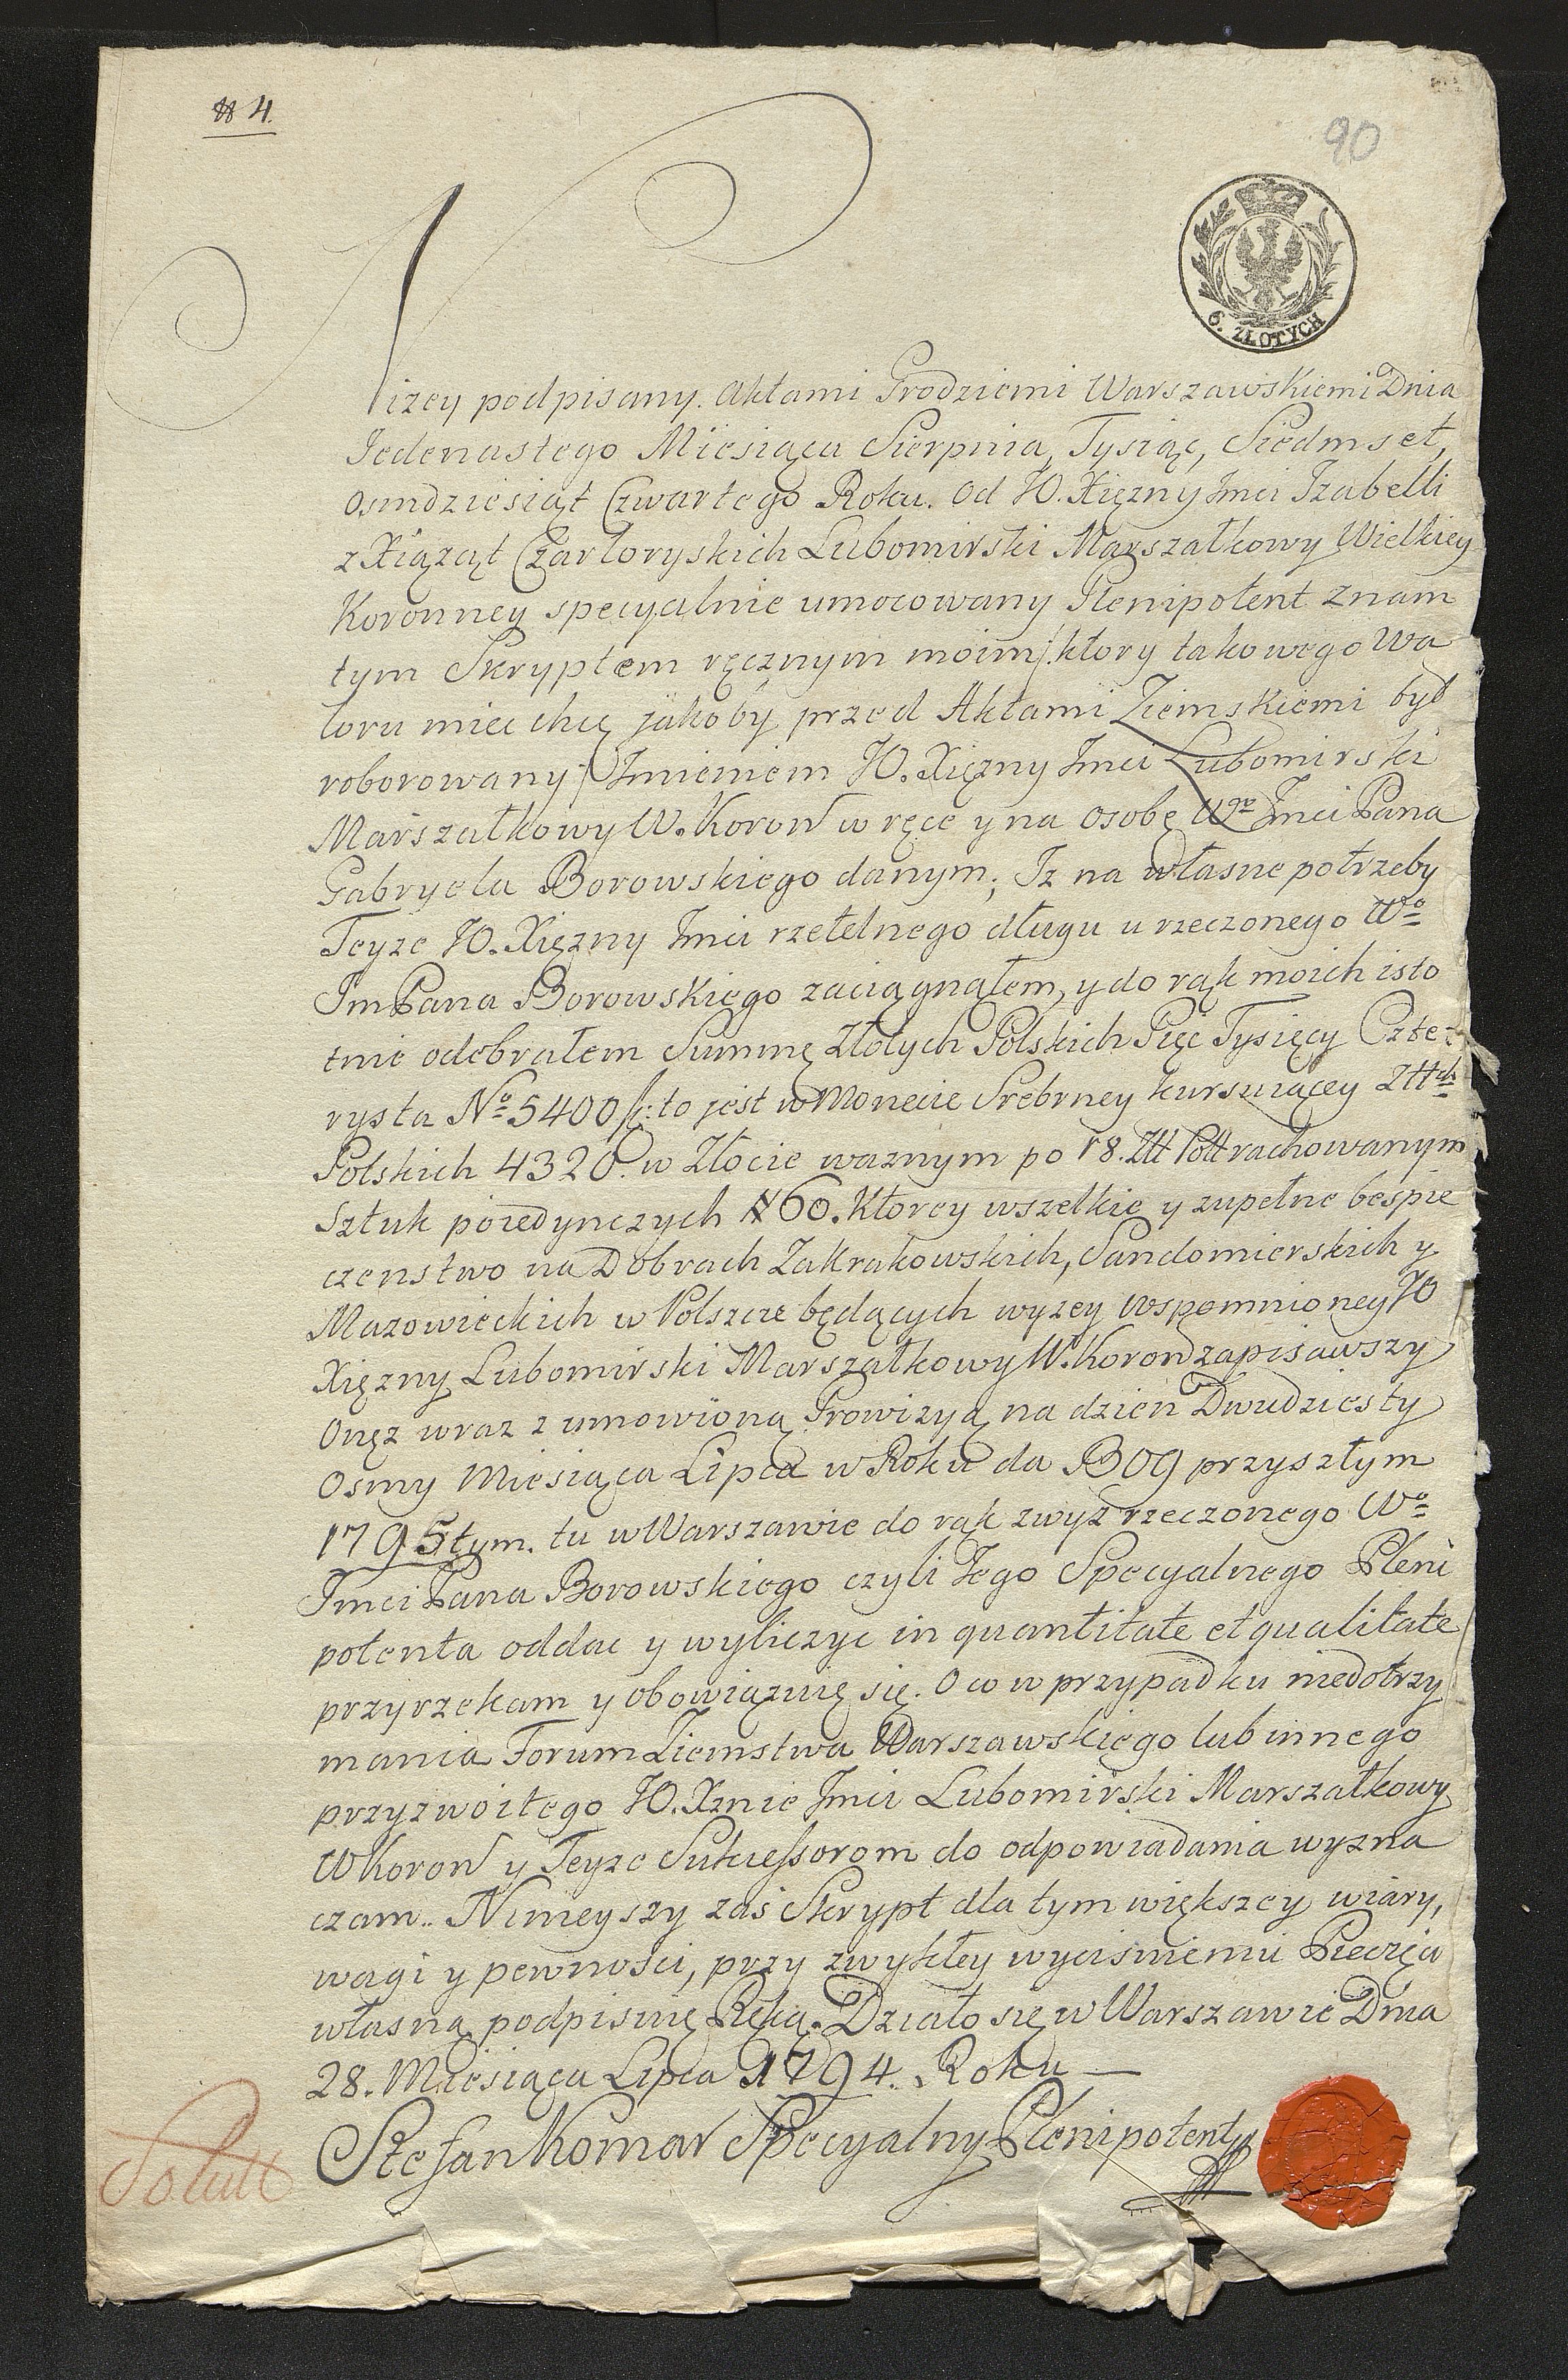 # 4.
90
6. ZŁOTYCH
Nizey podpisany. Aktami Grodzkiemi Warszawskiemi Dnia
Jedenastego Miesiąca Sierpnia, Tysiąc, Siedmset,
Osmdziesiąt Czwartego Roku. Od JO. Xięzny Jmci Izabelli
z Xiąząt Czartoryskich Lubomirski Marszałkowy Wielkiey
Koronney specyalnie umocowany Plenipotent znam
tym Skryptem ręcznym moim /: ktory takowego Wa
loru miec chcę jakoby przed Aktami Ziemskiemi był
roborowany :/ Jmieniem JO. Xięzny Jmci Lubomirski
Marszałkowy W. Koron w ręce y na osobę Wgo Jmci Pana
Gabryela Borowskiego danym; Iz na własne potrzeby
Teyze JO. Xięzny Jmci rzetelnego długu u rzeczonego Wo
Jm Pana Borowskiego zaciągnąłem, y do rąk moich isto
tnie odebrałem Summę Złotych Polskich Pięc Tysięcy Czte-
rysta No 5400 /: to jest w Monecie Srebrney kursuiącey Złłch
Polskich 4320. w Złocie waznym po 18. Złł Poll rachowanym
Sztuk poiedynczych # 60. Ktorey wszelkie y zupełne bespie
czenstwo na Dobrach Zakrakowskich, Sandomierskich y
Mazowieckich w Polszcze będących wyzey wspomnioney JO
Xięzny Lubomirski Marszałkowy W. Koron zapisawszy
Onęz wraz z umowioną Prowizyą na dzien Dwudziesty
Osmy Miesiąca Lipca w Roku da BOG przyszłym
1795tym. tu w Warszawie do rąk zwyz rzeczonego Wo
Jmci Pana Borowskiego czyli Jego Specyalnego Pleni
potenta oddac y wyliczyc in quantitate et qualitate
przyrzekam y obowiązuię się. O co w przypadku niedotrzy
mania Forum Ziemstwa Warszawskiego lub innego
przyzwoitego JO. Xznie Jmci Lubomirski Marszałkowy
W Koron y Teyze Sukcessorom do odpowiadania wyzna
czam. Ninieyszy zaś Skrypt dla tym większey wiary,
wagi y pewności, przy zwykłey wycisnieniu Pieczęci
własną podpisuię Ręką. Działo się w Warszawie Dnia
28. Miesiąca Lipca 1794. Roku —
Stefan Komar Specyalny Plenipotent
Solutt